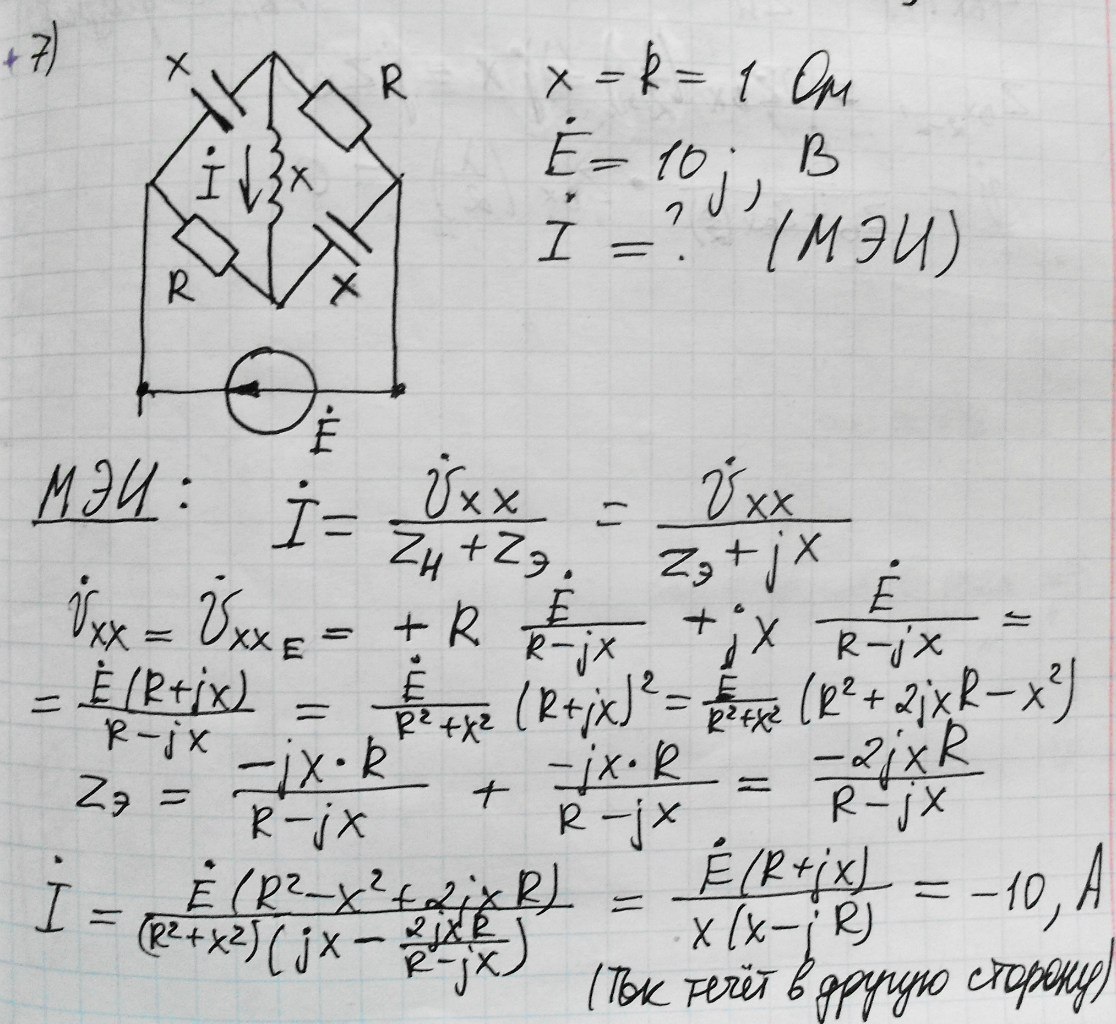 + 7)
X R X = R = 1 Ом
İ X Ė = 10j, В
R X İ = ? (МЭИ)
Ė
МЭИ: İ = U̇xx / (Zн + Zэ) = U̇xx / (Zэ + jX)
U̇xx = U̇xxE = + R Ė / (R - jX) + jX Ė / (R - jX) =
= Ė(R + jX) / (R - jX) = Ė / (R² + X²) (R + jX)² = Ė / (R² + X²) (R² + 2jXR - X²)
Zэ = -jX · R / (R - jX) + -jX · R / (R - jX) = -2jXR / (R - jX)
İ = Ė(R² - X² + 2jXR) / (R² + X²)(jX - 2jXR / (R - jX)) = Ė(R + jX) / X(X - jR) = -10, А
(Ток течёт в другую сторону)